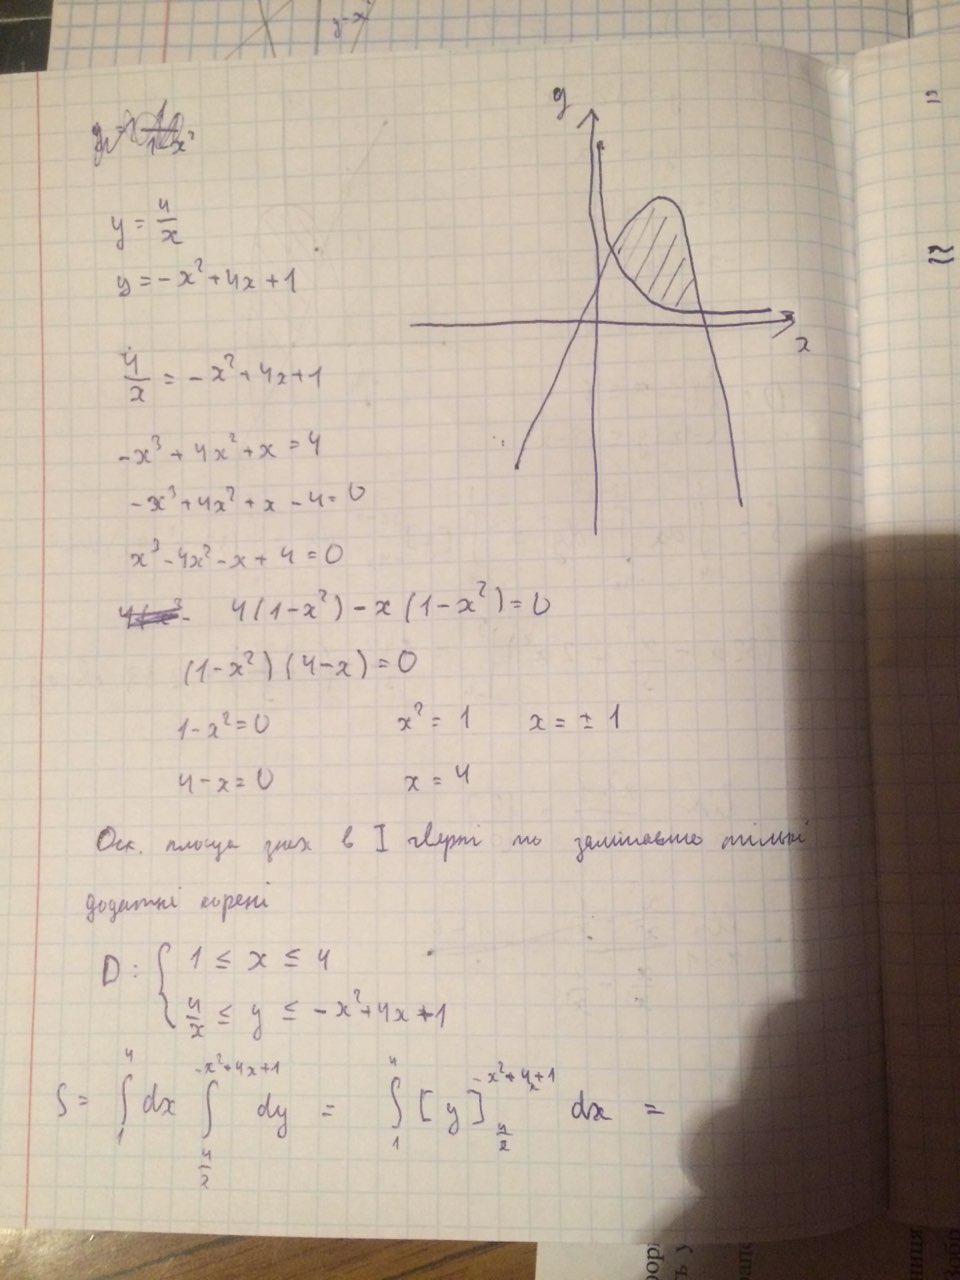 y = 4/x
y = -x² + 4x + 1
y
x
4/x = -x² + 4x + 1
-x³ + 4x² + x = 4
-x³ + 4x² + x - 4 = 0
x³ - 4x² - x + 4 = 0
4(1-x²) - x(1-x²) = 0
(1-x²)(4-x) = 0
1-x² = 0 x² = 1 x = ± 1
4-x = 0 x = 4
Оск. площа знах в I чверті то залишаємо тільки
додатні корені
D: { 1 ≤ x ≤ 4
4/x ≤ y ≤ -x² + 4x + 1
S = ∫₁⁴ dx ∫_{4/x}^{-x²+4x+1} dy = ∫₁⁴ [y]_{4/x}^{-x²+4x+1} dx =